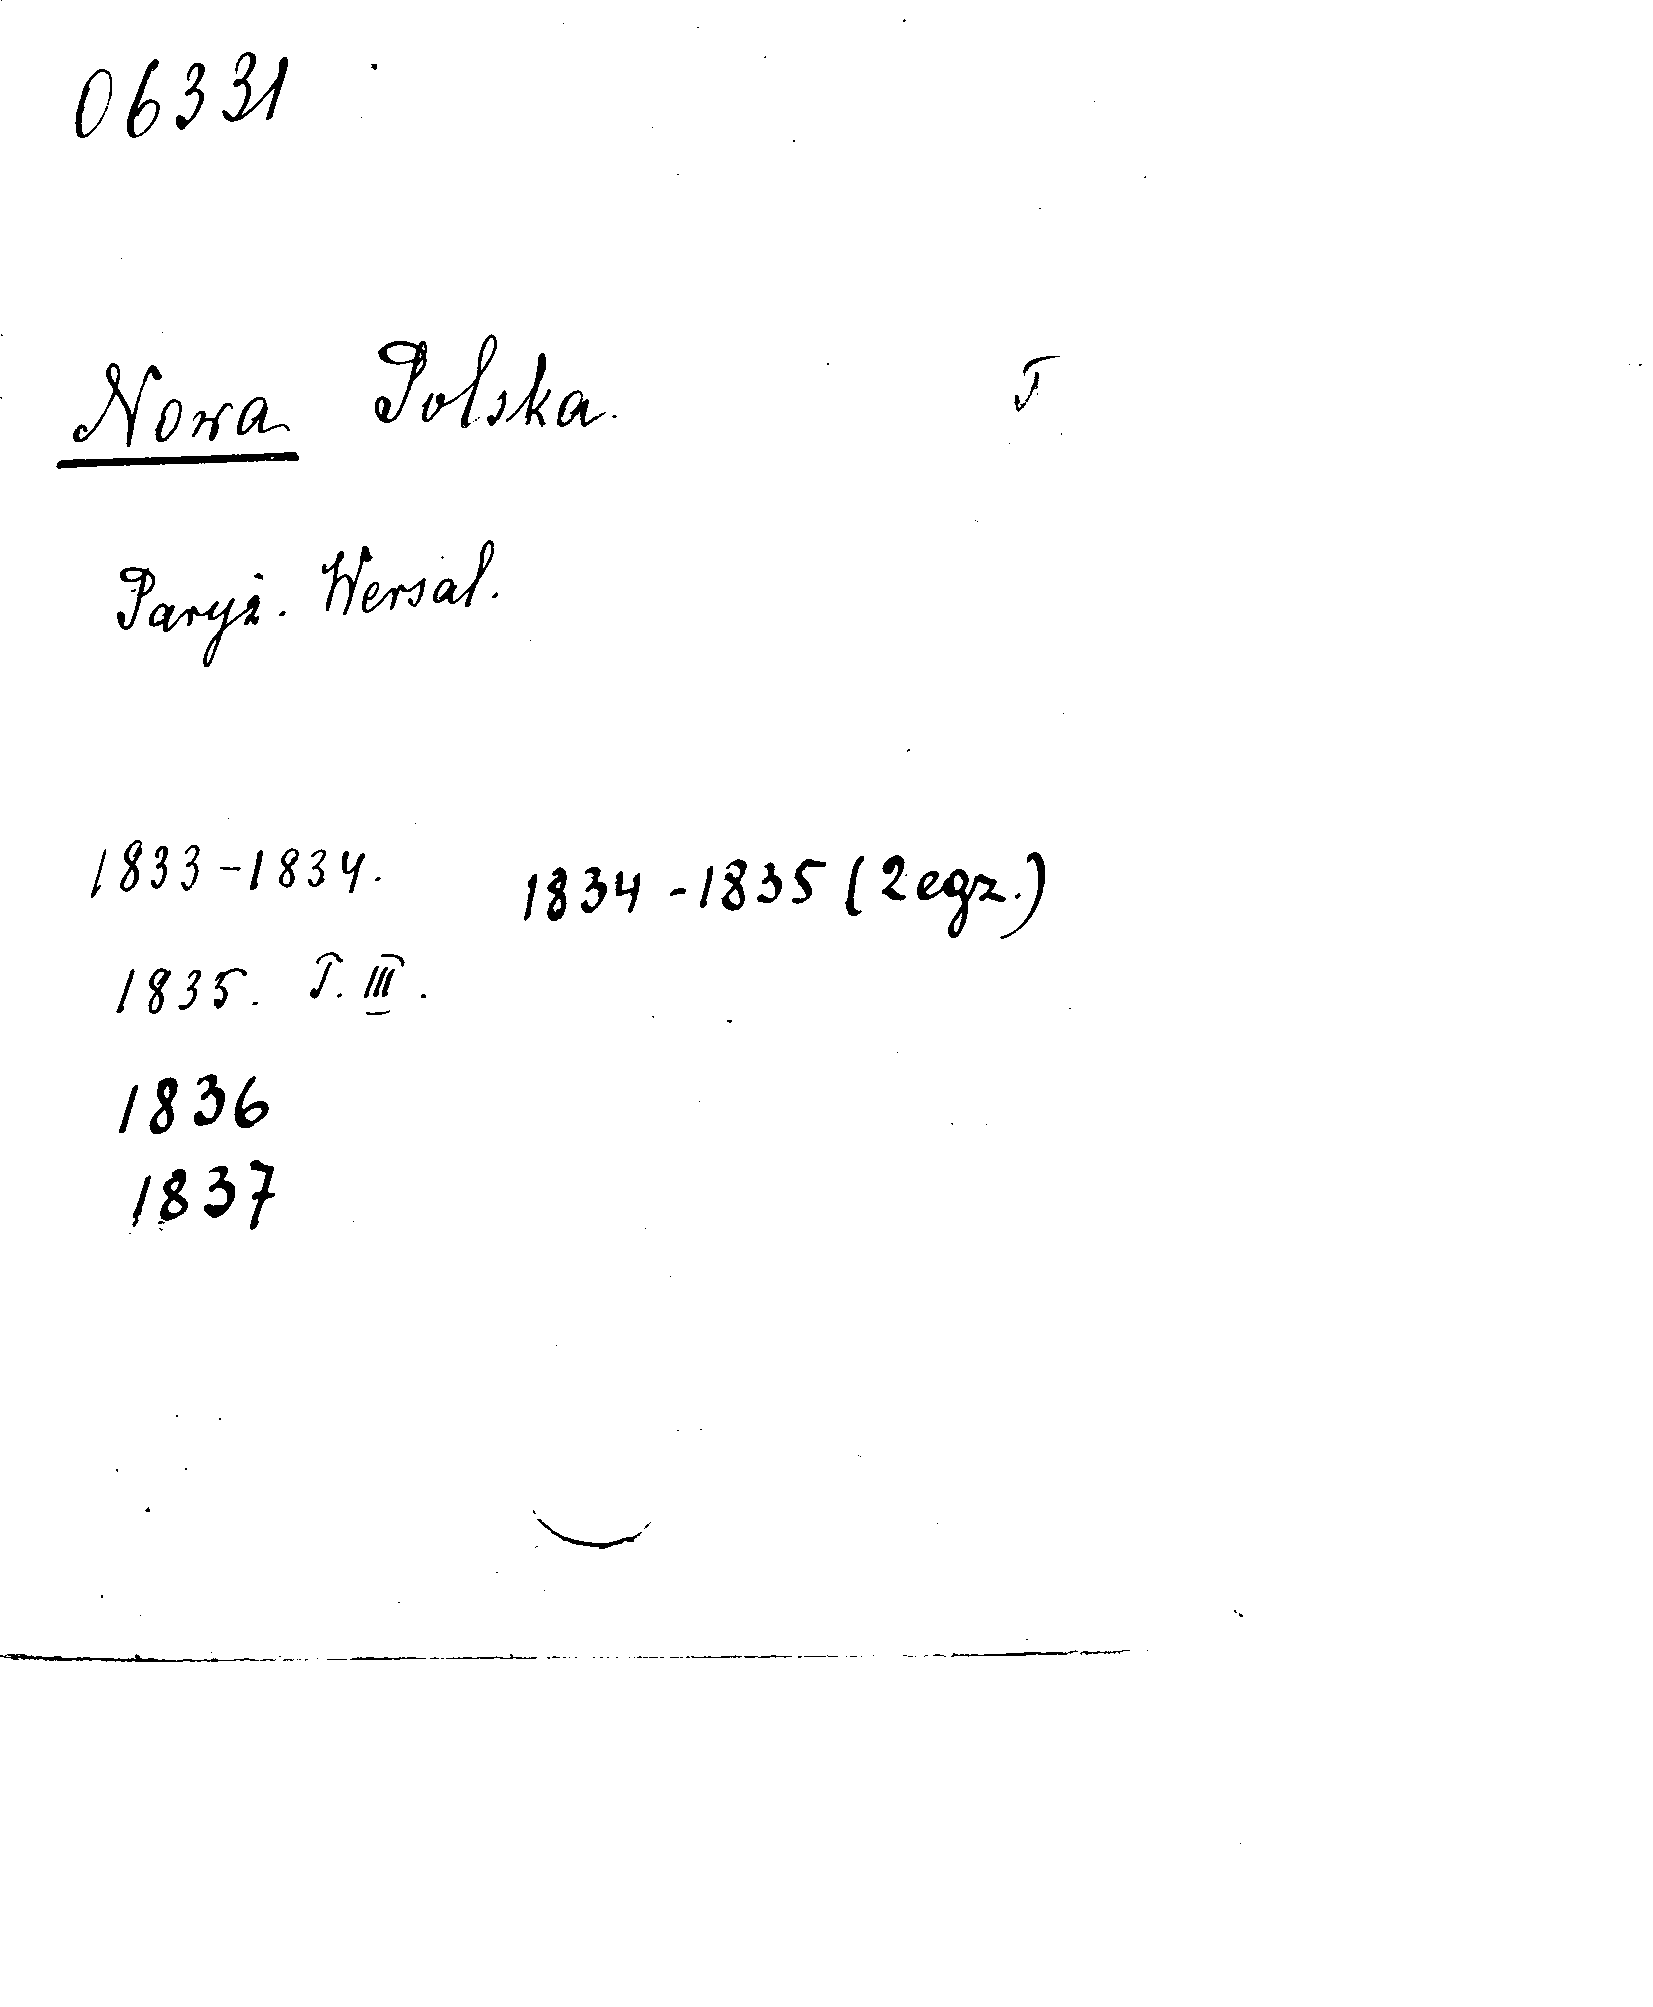 06331
Nowa Polska. T
Paryż. Wersal.
1833-1834. 1834-1835 (2egz.)
1835. T. III.
1836
1837